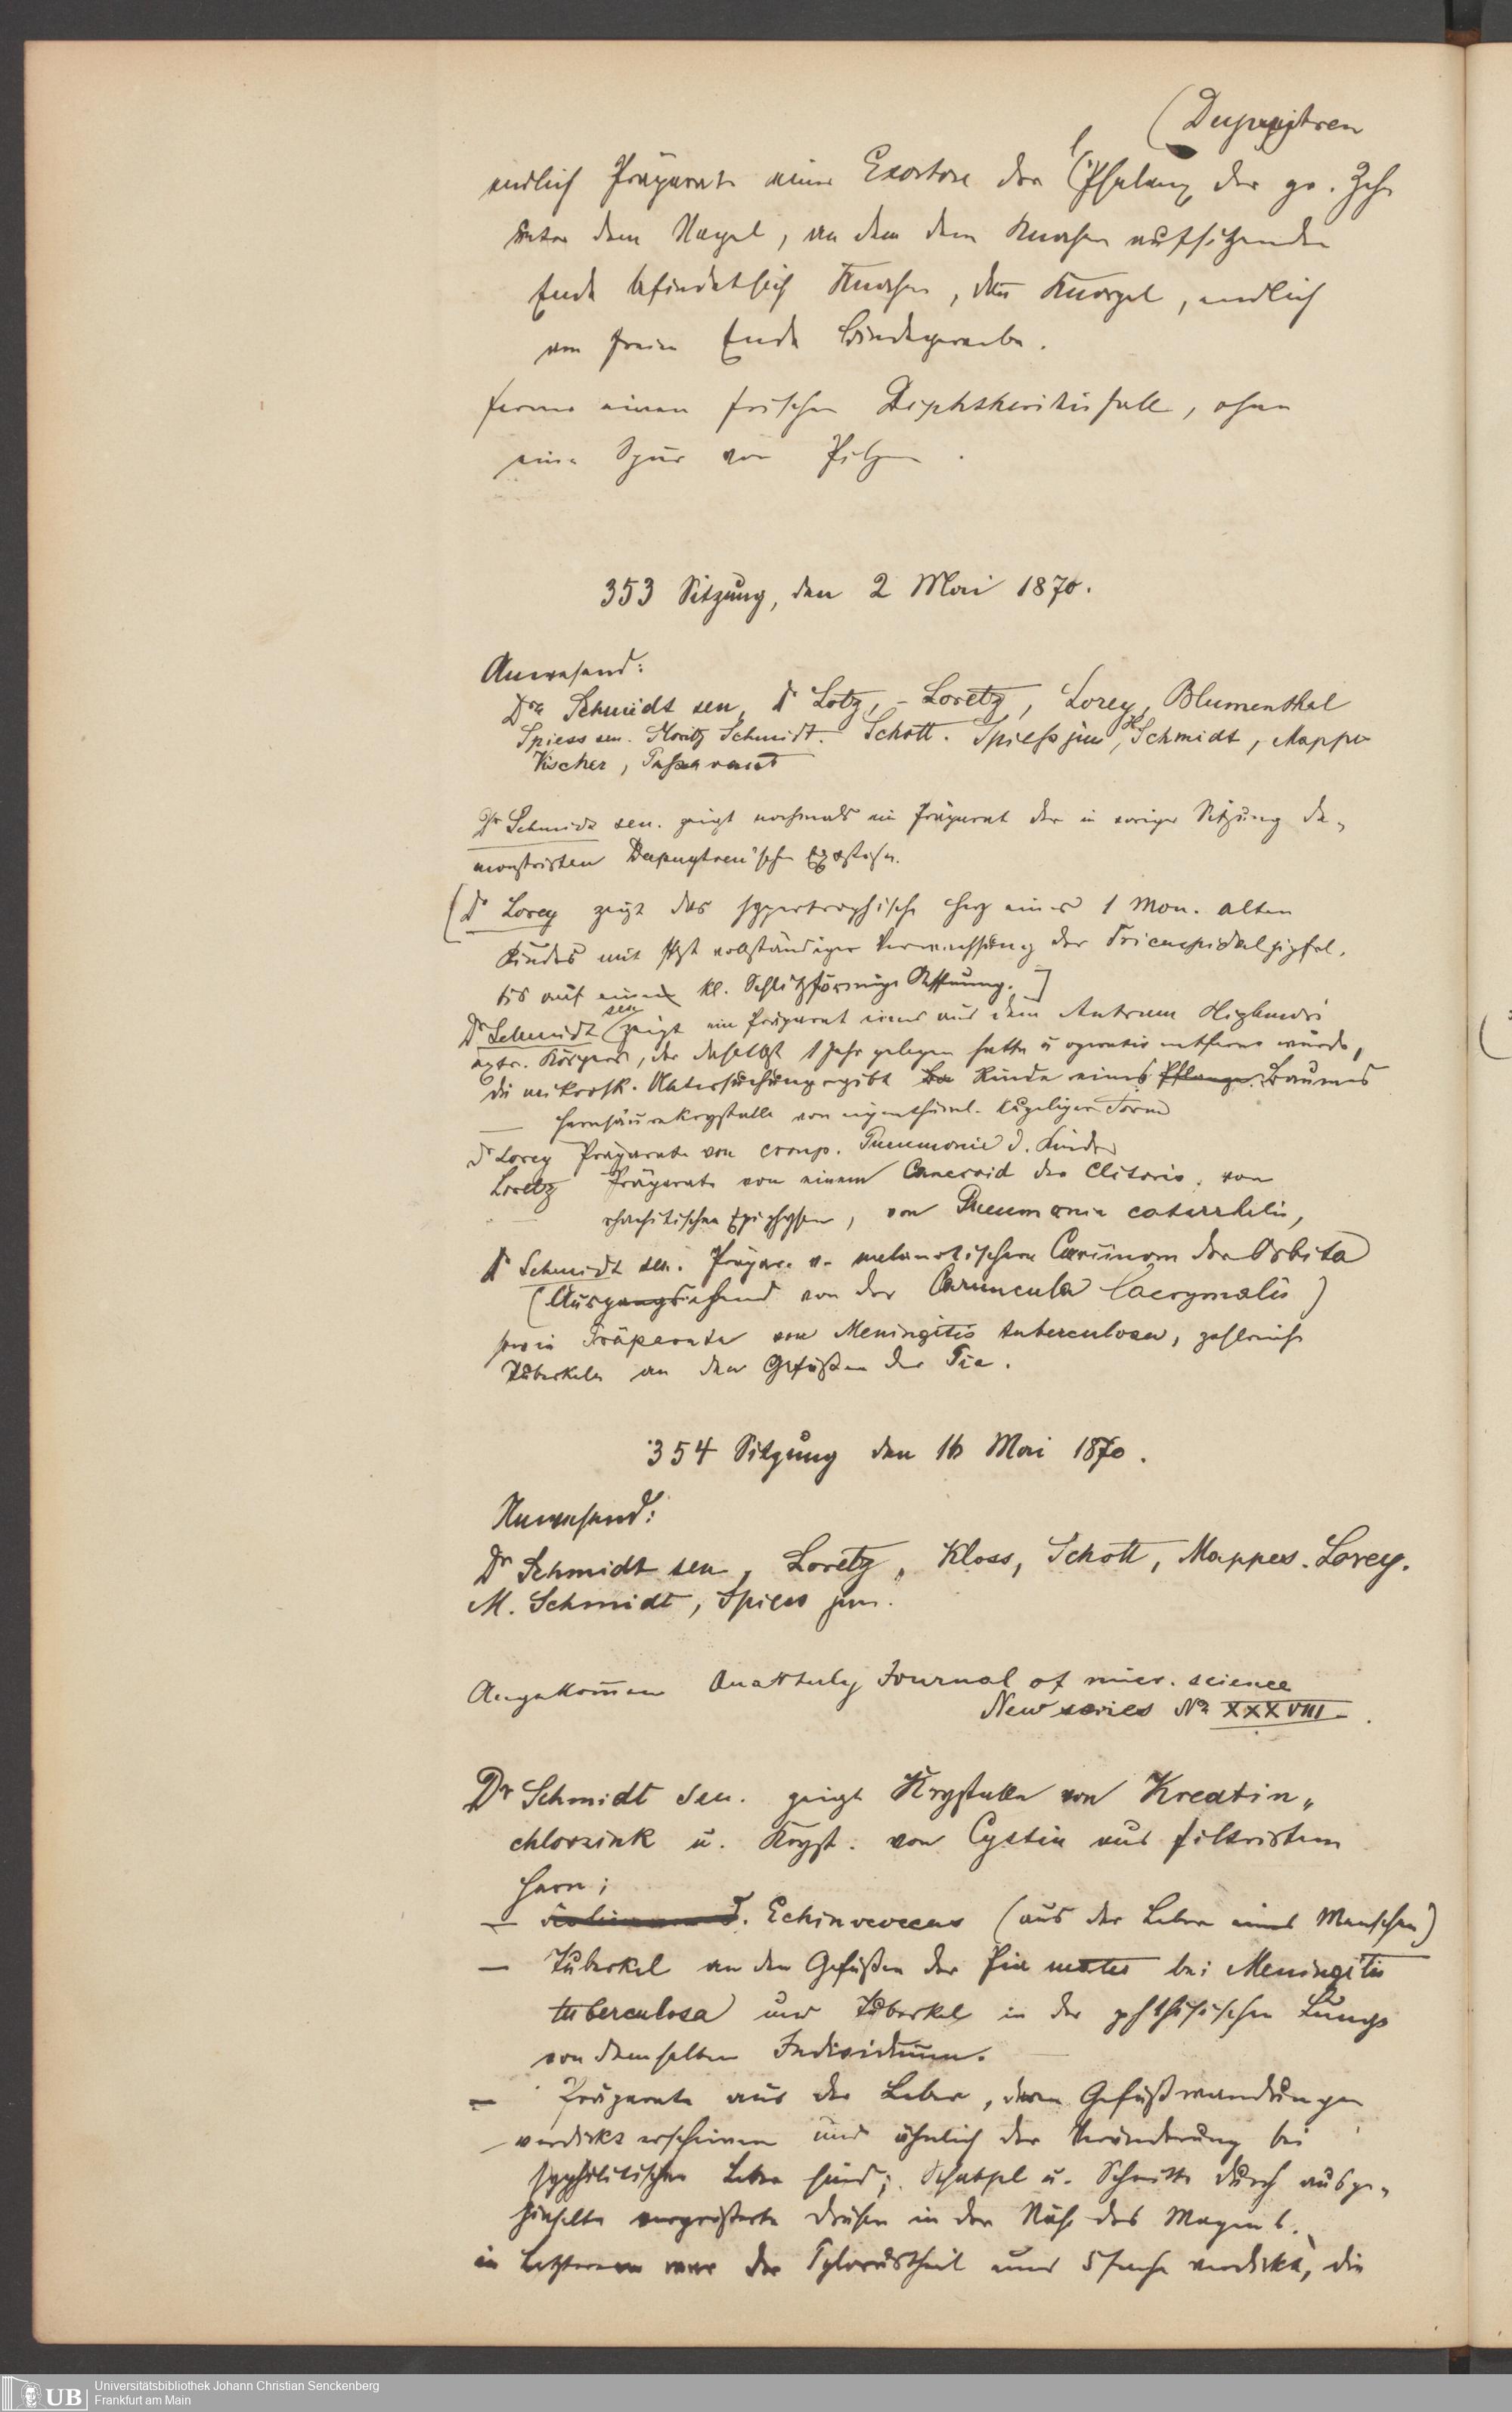 (Dupuytren
endlich Präparate einer Exostose der Phalanx der gr. Zehe
unter dem Nagel, an dem dem Knochen aufsitzenden
Ende befindet sich Knochen, dann Knorpel, endlich
am freien Ende Bindegewebe.
ferner einen frischen Diphtheritisfall, ohne
eine Spur von Pilzen.
353 Sitzung, den 2 Mai 1870.
Anwesend:
Drs Schmidt sen, Dr Lotz, – Loretz, Lorey, Blumenthal
Spiess sen. Moritz Schmidt. Schott. Spiess jun, H Schmidt, Mappes
Vischer, Passavant
Dr Schmidt sen. zeigt nochmals ein Präparat der in voriger Sitzung de-
monstrirten Dupuytren'schen Exostose.
(Dr Lorey zeigt das hypertrophische Herz eines 1 Mon. alten
Kindes mit fast vollständiger Verwachsung der Tricuspidalzipfel,
bis auf eine kl. schlitzförmige Oeffnung.]
Dr Schmidt sen zeigt ein Präparat eines aus dem Antrum Highmori
extr. Körpers, der daselbst 1 Jahr gelegen hatte u operativ entfernt wurde,
die mikrosk. Untersuchung ergibt Rinde eines Pflanze. Baumes
— Harnsäurekrystalle von eigenthüml. kugeliger Form
Dr Lorey Präparate von croup. Pneumonie d. Kinder
Loretz Präparate von einem Cancroid der Clitoris, von
" — rhachitischen Epiphysen, von Pneumonia catarrhalis,
Dr Schmidt sen. Präpar. v. melanotischem Carcinom der Orbita
(Ausgehend von der Caruncula lacrymalis)
sowie Präparate von Meningitis tuberculosa, zahlreiche
Tuberkeln an den Gefäßen der Pia.
354 Sitzung den 16 Mai 1870.
Anwesend:
Dr Schmidt sen, Loretz, Kloss, Schott, Mappes. Lorey.
M. Schmidt, Spiess jun.
Angekommen Quatterly Journal of micr. science
New series No XXXVIII.
Dr Schmidt sen. zeigt Krystalle von Kreatin-
chlorzink u. Kryst. von Cystin aus filtrirtem
Harn;
— Echinococcus (aus der Leber eines Menschen)
— Tuberkel an den Gefäßen der Pia mater bei Meningitis
tuberculosa und Tuberkel in der phthisischen Lunge
von demselben Individuum.
— Präparate aus der Leber, deren Gefäßwandungen
verdickt erscheinen und ähnlich der Veränderung bei
syphilitischer Leber sind; u. Schnitte durch ausge-
vergrößerte Drüsen in der Nähe des Magens.
in Letzterem war der Pylorustheil ums 5fache verdickt, die
UB Universitätsbibliothek Johann Christian Senckenberg
Frankfurt am Main